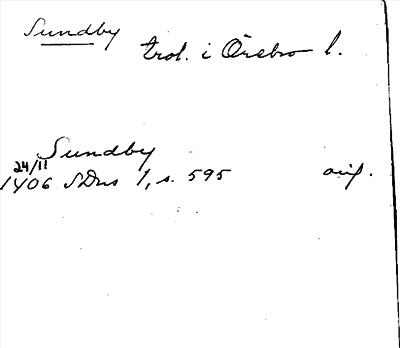 Sundby
trol. i Örebro l.
Sundby
24/11
1406 SDns 1, s. 595 avs.